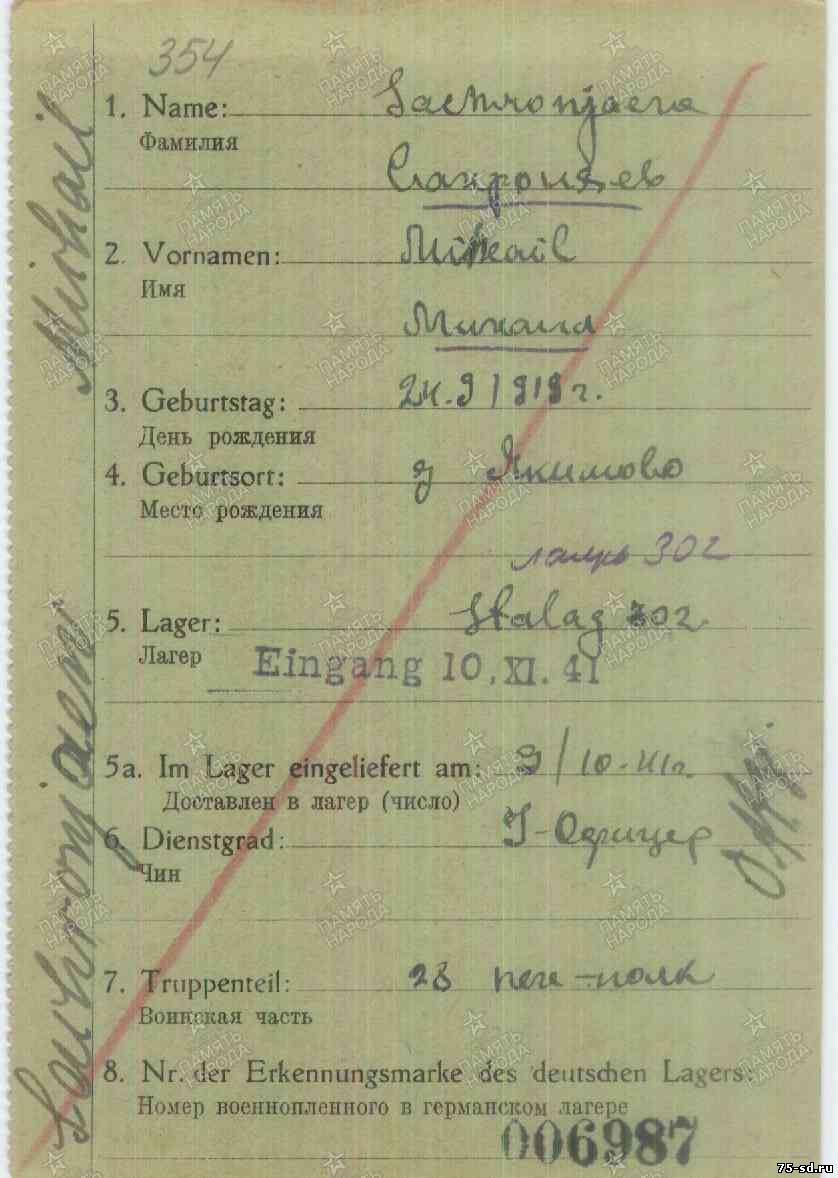 354
1. Name:
Фамилия
2. Vornamen: Mihail
Имя
Михаил
3. Geburtstag: 24.9 1919 г.
День рождения
4. Geburtsort: д Якимово
Место рождения
лагерь 302
5. Lager: Stalag 302
Лагер
Eingang 10. XI. 41
5a. Im Lager eingeliefert am:
Доставлен в лагер (число)
6. Dienstgrad: У-Офицер
Чин
7. Truppenteil: 28 пехт-полк
Воинская часть
8. Nr. der Erkennungsmarke des deutschen Lagers:
Номер военнопленного в германском лагере
006987
Michail
Offz
ПАМЯТЬ НАРОДА
75-sd.ru